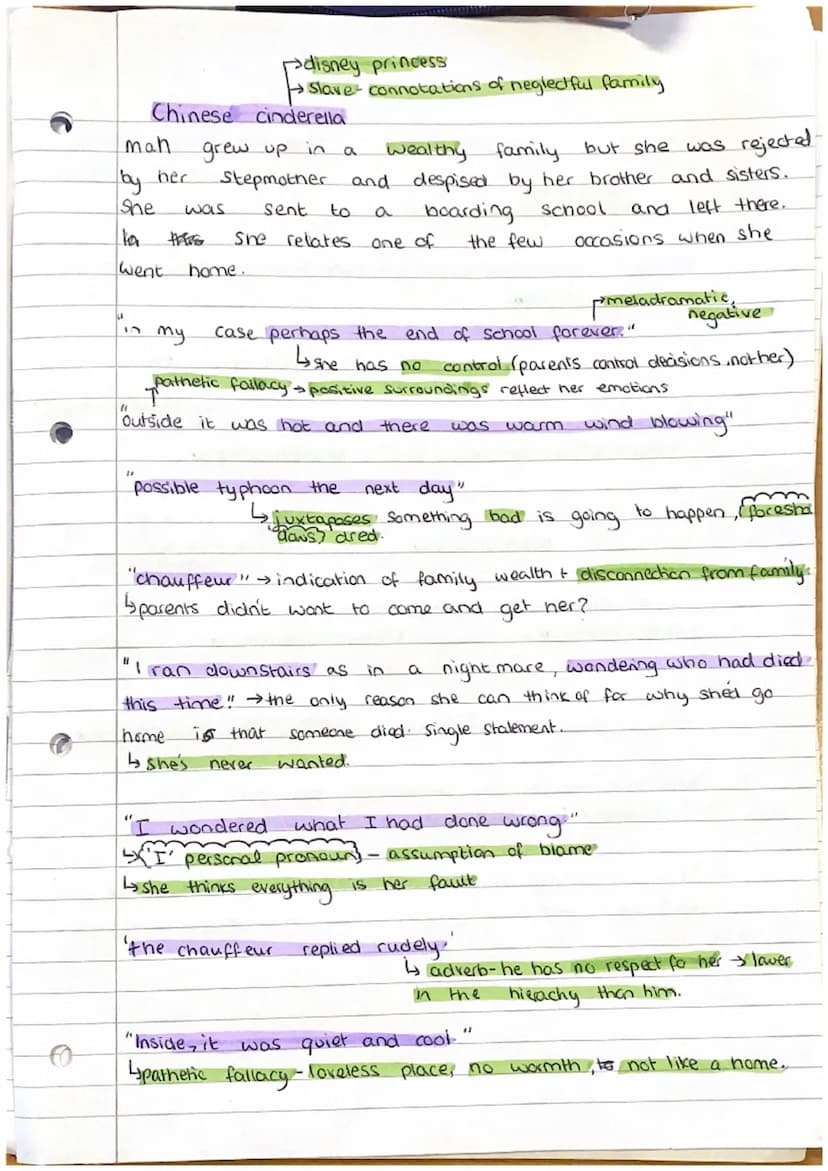 →disney princess
→ slave - connotations of neglectful family
Chinese cinderella
mah grew up in a wealthy family but she was rejected
by her stepmother and despised by her brother and sisters.
She was sent to a boarding school and left there.
She relates one of the few occasions when she
went home.
→meladramatic,
negative
"in my case perhaps the end of school forever."
↳she has no control (parents control decisions, not her)
pathetic fallacy → positive surroundings reflect her emotions
"outside it was hot and there was warm wind blowing"
"possible typhoon the next day"
↳ juxtaposes something bad is going to happen, (foresha
dows) dred.
"chauffeur" → indication of family wealth + disconnection from family.
↳parents didn't want to come and get her?
"I ran downstairs as in a nightmare, wondering who had died
this time" →the only reason she can think of for why she'd go
home is that someone died. Single statement.
↳ she's never wanted.
"I wondered what I had done wrong."
↳('I' personal pronoun) - assumption of blame
↳she thinks everything is her fault
'the chauffeur replied rudely.'
↳ adverb- he has no respect fo her → lower
in the hierachy than him.
"Inside, it was quiet and cool."
↳pathetic fallacy - loveless place, no warmth, not like a home.